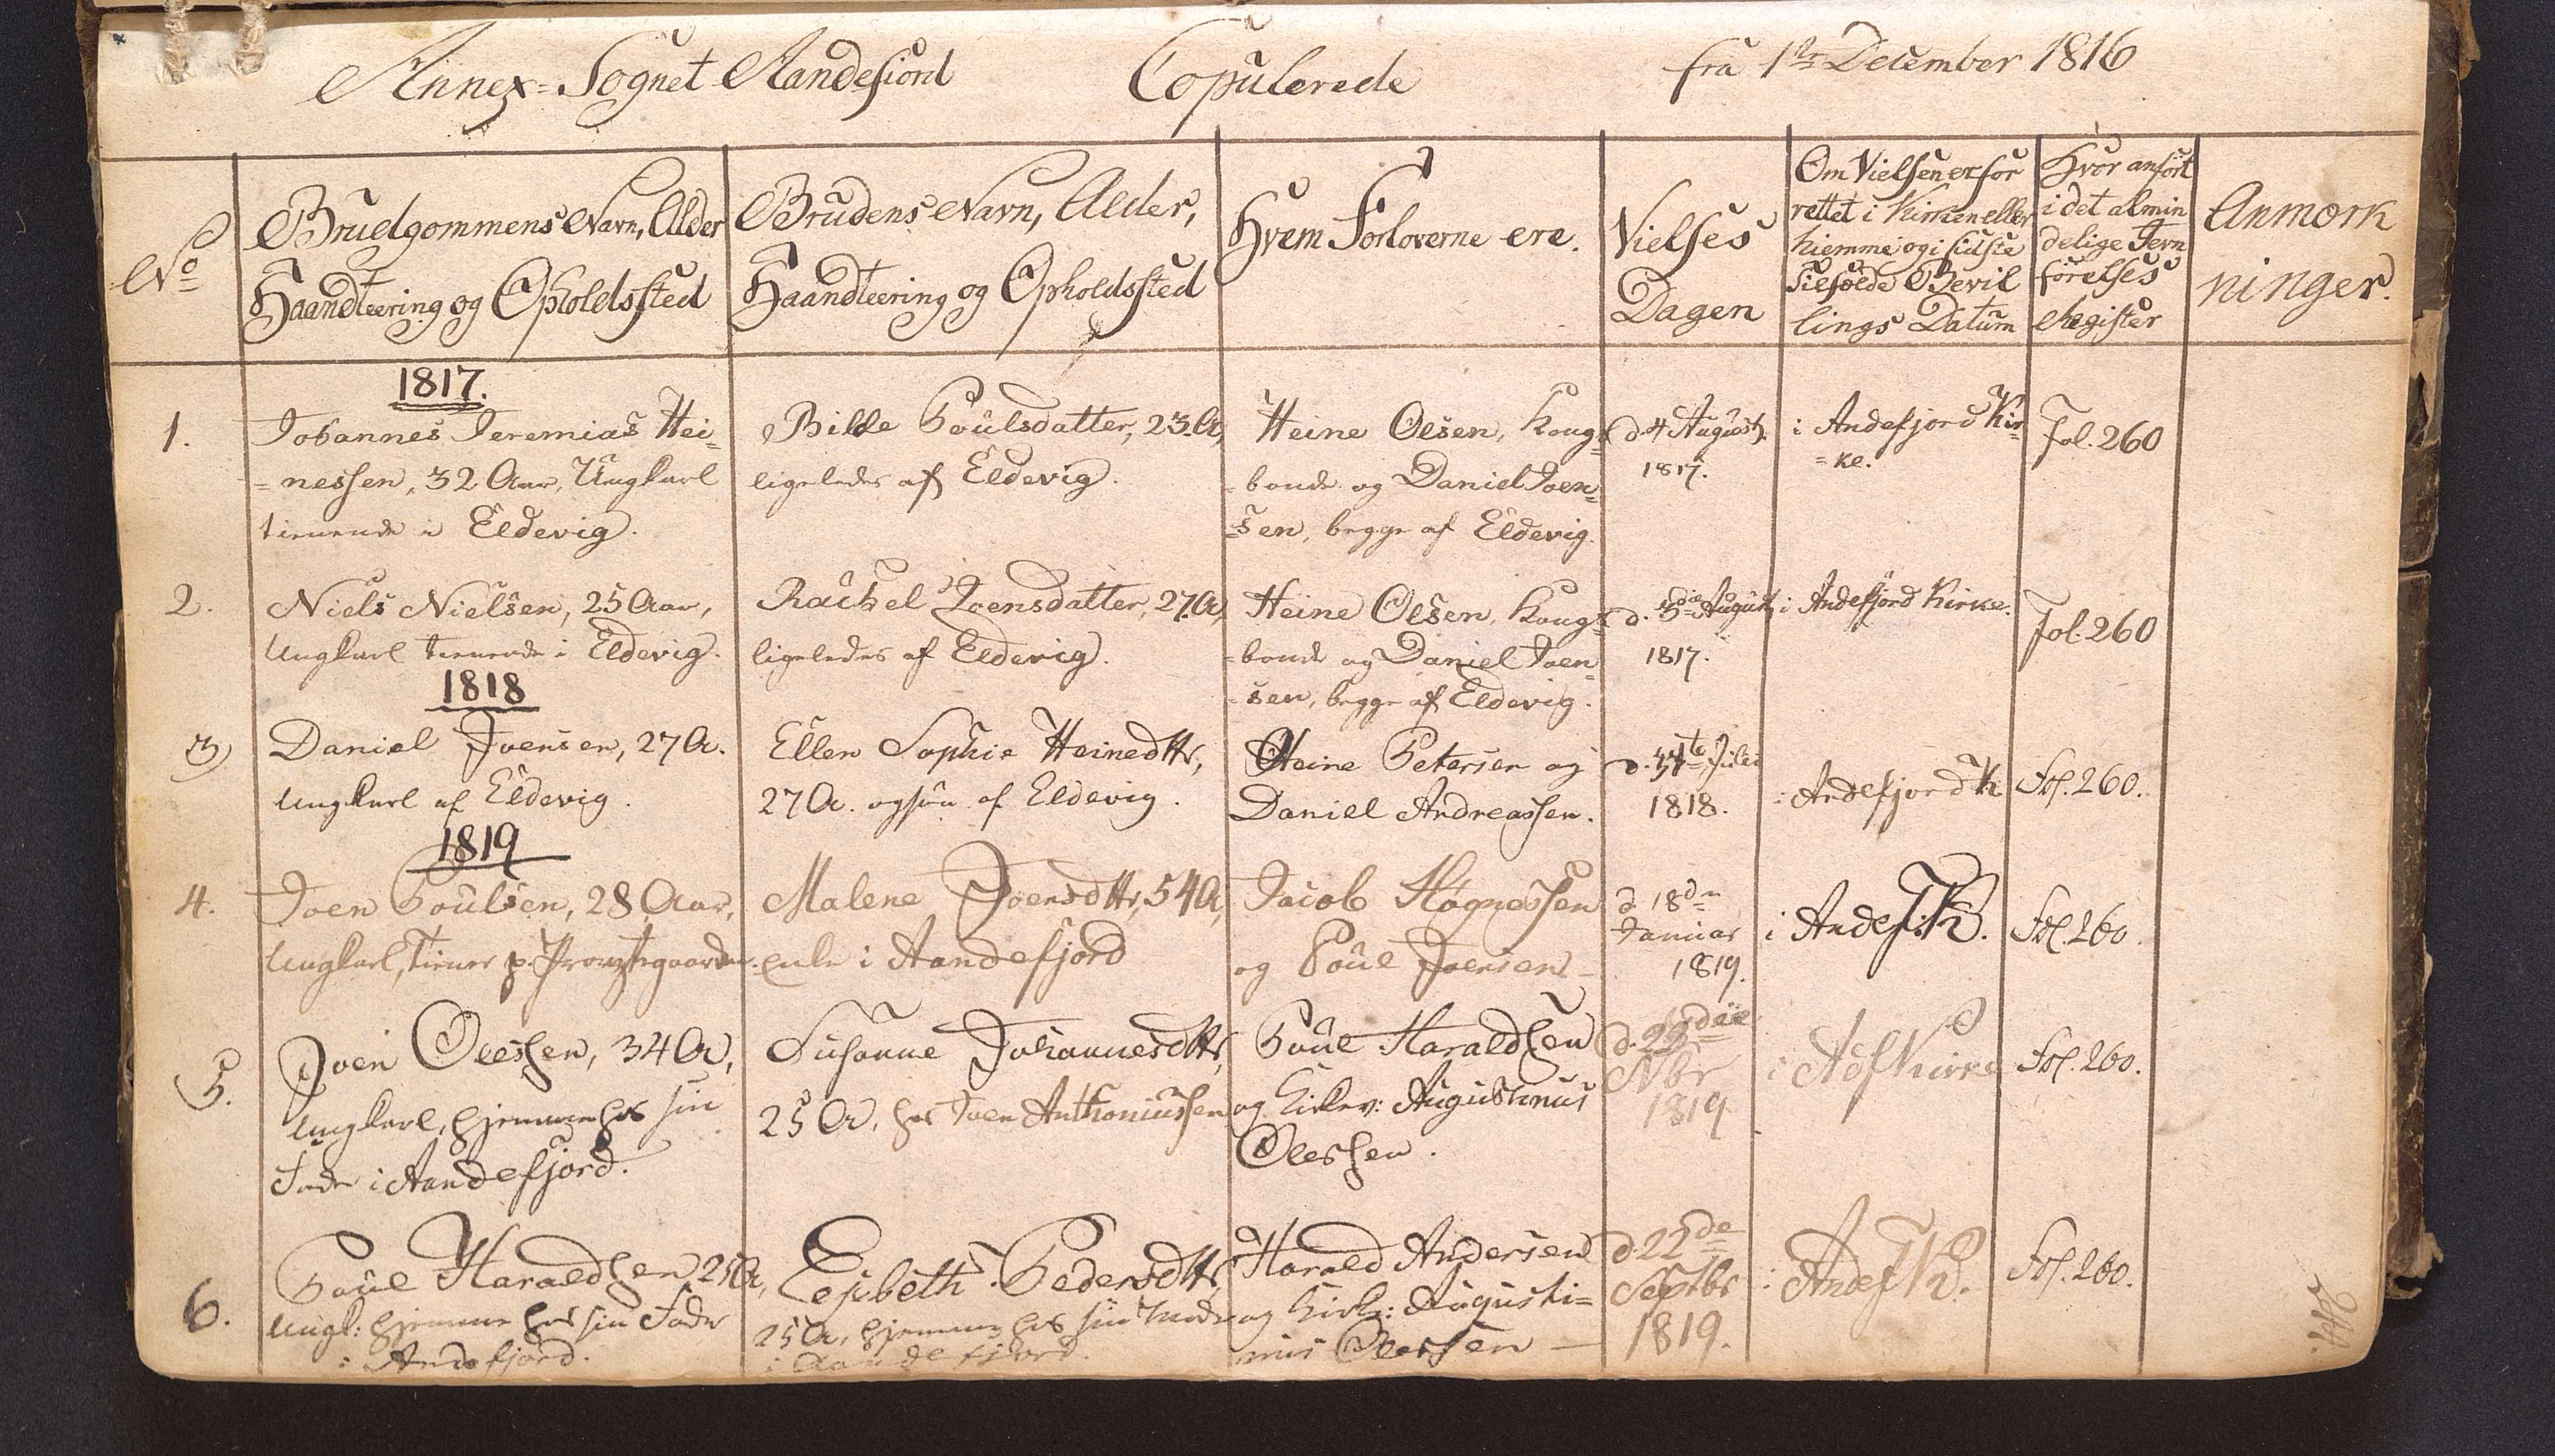 Annex=Sognet Aandefiord Copulerede fra 1ste December 1816
No
Brudgommens Navn, Alder
Haandteering og Opholdssted
Brudens Navn, Alder,
Haandteering og Opholdssted
Hvem Forloverne ere.
Vielses
Dagen
Om Vielsen er for
rettet i Kirken eller
hiemme og i sidste
Tilfælde Bevil
lings Datum
Hvor anført
i det almin
delige Jevn
førelses
Register
Anmærk
ninger.
1817.
1.
Johannes Jeremias Hei=
=nessen, 32 Aar, Ungkarl
tienende i Eldevig.
Bilde Poulsdatter, 23. A,
ligeledes af Eldevig.
Heine Olsen, Kongs=
=bonde og Daniel Joen=
=sen, begge af Eldevig.
d. 4 August
1817.
i Andefjord Kir=
=ke.
Fol. 260
2.
Niels Nielsen, 25 Aar,
Ungkarl tienende i Eldevig.
Rachel Joensdatter, 27. A,
ligeledes af Eldevig.
Heine Olsen, Kongs=
=bonde og Daniel Joen=
=sen, begge af Eldevig.
d. August
1817.
i Andefjord Kirke.
Fol. 260
1818
3
Daniel Joensen, 27 A.
Ungkarl af Eldevig.
Ellen Sophie Heinedttr,
27 A. ogsaa af Eldevig.
Heine Petersen og
Daniel Andreassen.
d. Julii
1818.
i Andefjord K.
Fol. 260.
1819
4.
Joen Poulsen, 28 Aar,
Ungkarl, tiener p. Provstegaarden.
Malene Joensdttr, 54 A,
enke i Aandefjord
Jacob Høgnessen
og Poul Joensen
d 18de
Januar
1819.
i Andef: K.
Fol. 260.
5.
Joen Olessen, 34 A,
Ungkarl, hjemme hos sin
Fader i Aandefjord.
Susanne Johannesdttr,
25 A, hos Joen Anthoniussen
Poul Haraldsen
og Kirkev: Augustinus
Olessen.
d.
Nbr
1819
i Adf Kirke
Fol. 260.
6.
Poul Haraldsen 25 A,
Ungk: hjemme hos sin Fader
i Andefjord.
Elsbeth Pedersdttr,
25 A, hjemme hos sin Moder
i Aandefjord.
Harald Andersen
og Kirkv: Augusti=
nus Olessen
d. 22de
Septbr
1819.
i Andef K.
Fol. 260.